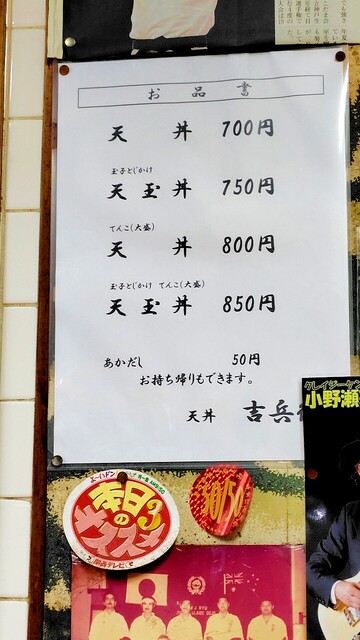 お品書
天丼 700円
玉子とじかけ
天玉丼 750円
てんこ(大盛)
天丼 800円
玉子とじかけ てんこ(大盛)
天玉丼 850円
あかだし 50円
お持ち帰りもできます。
天丼 吉兵
クレイジーケン
小野瀬
エーハドン
本日
の3
オススメ
50/50